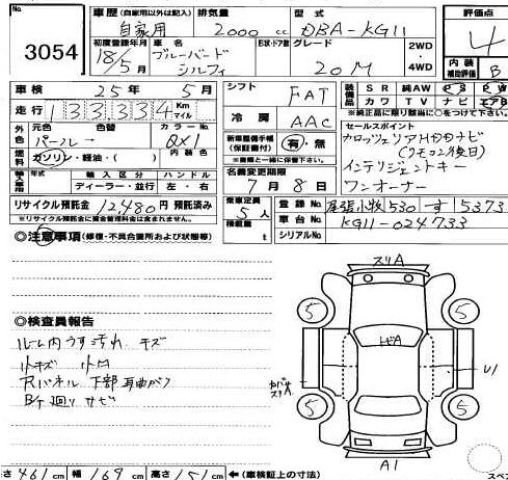 No. 3054
車歴(自家用以外は記入) 自家用
排気量 2000 cc
型式 DBA-KG11
評価点 4
初度登録年月 18/5月
車名 ブルーバード シルフィ
形状・ドア数
グレード 20M
2WD
4WD
内装補助評価 B
車検 25年 5月
シフト FAT
装備品 SR 純AW PS PW
カワ TV ナビ エアB
※純正品に限り装備に○をつけて下さい。
走行 133,334 Km マイル
冷房 AAC
外色 元色 パール 色替
カラーNo. QX1
内装色
燃料 ガソリン・軽油・( )
新車整備手帳(保証書付) 有・無
※書類と一緒に保管下さい。
セールスポイント
カロッツェリアHDDナビ
(リモコン後日)
インテリジェントキー
ワンオーナー
輸入車用 年式
輸入区分 ディーラー・並行
ハンドル 左・右
名義変更期限 7月 8日
リサイクル預託金 12,480円 預託済み
※リサイクル預託金に資金管理料金は含まれません。
乗車定員 5人
積載量 t
登録No. 尾張小牧 530 す 15373
車台No. KG11-024733
シリアルNo.
◎注意事項(修復・不具合箇所および状態等)
スリA
5 5
トビA
U1
カバサスリA
5 5
A1
◎検査員報告
ルーム内うす汚れ キズ
小キズ 小凹
Rパネル 下部耳曲がり
Bド廻り サビ
さ 461 cm 幅 169 cm 高さ 151 cm ←(車検証上の寸法)
スペ